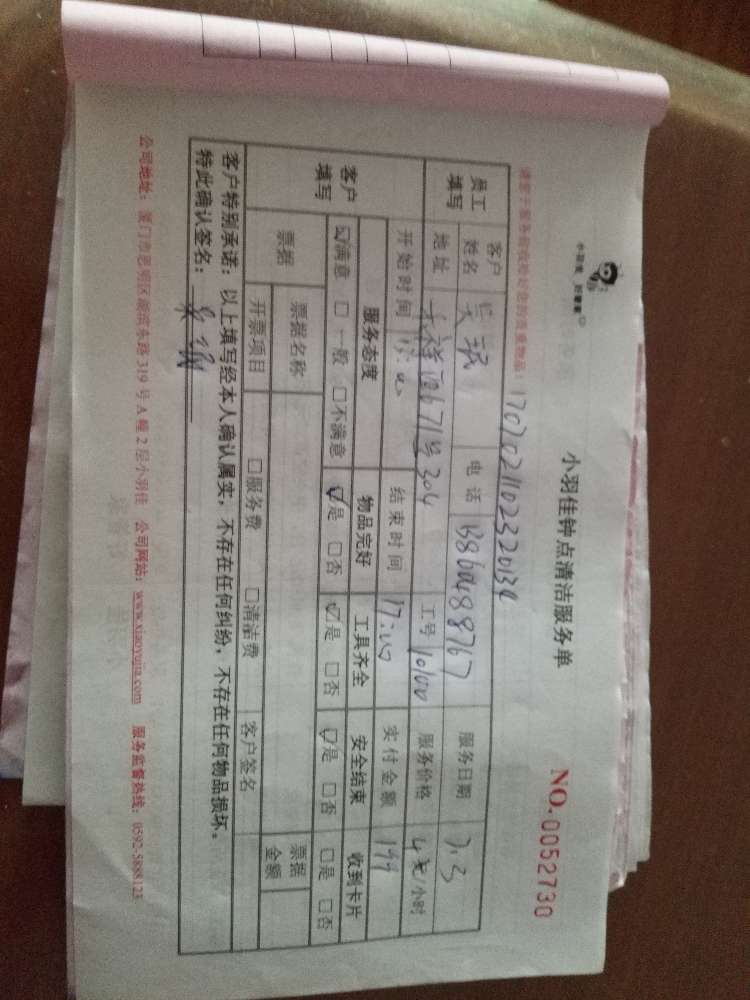 小羽佳 好管家
小羽佳钟点清洁服务单
NO.0052730
1707021102320134
员工填写 客户姓名 电话 服务日期 7.3
地址 671号304 工号 10100 服务价格 /小时
客户填写 开始时间 结束时间 17:00 实付金额 199
服务态度 物品完好 工具齐全 安全结束 收到卡片
☑满意 □一般 □不满意 ☑是 □否 ☑是 □否 ☑是 □否 □是 □否
票据 票据名称 票据金额
开票项目 □服务费 □清洁费 客户签名
客户特别承诺：以上填写经本人确认属实，不存在任何纠纷，不存在任何物品损坏。
特此确认签名：
公司地址：厦门市思明区湖滨东路319号A幢2层小羽佳 公司网站：www.xiaoyujia.com 服务监督热线：0592-5888123